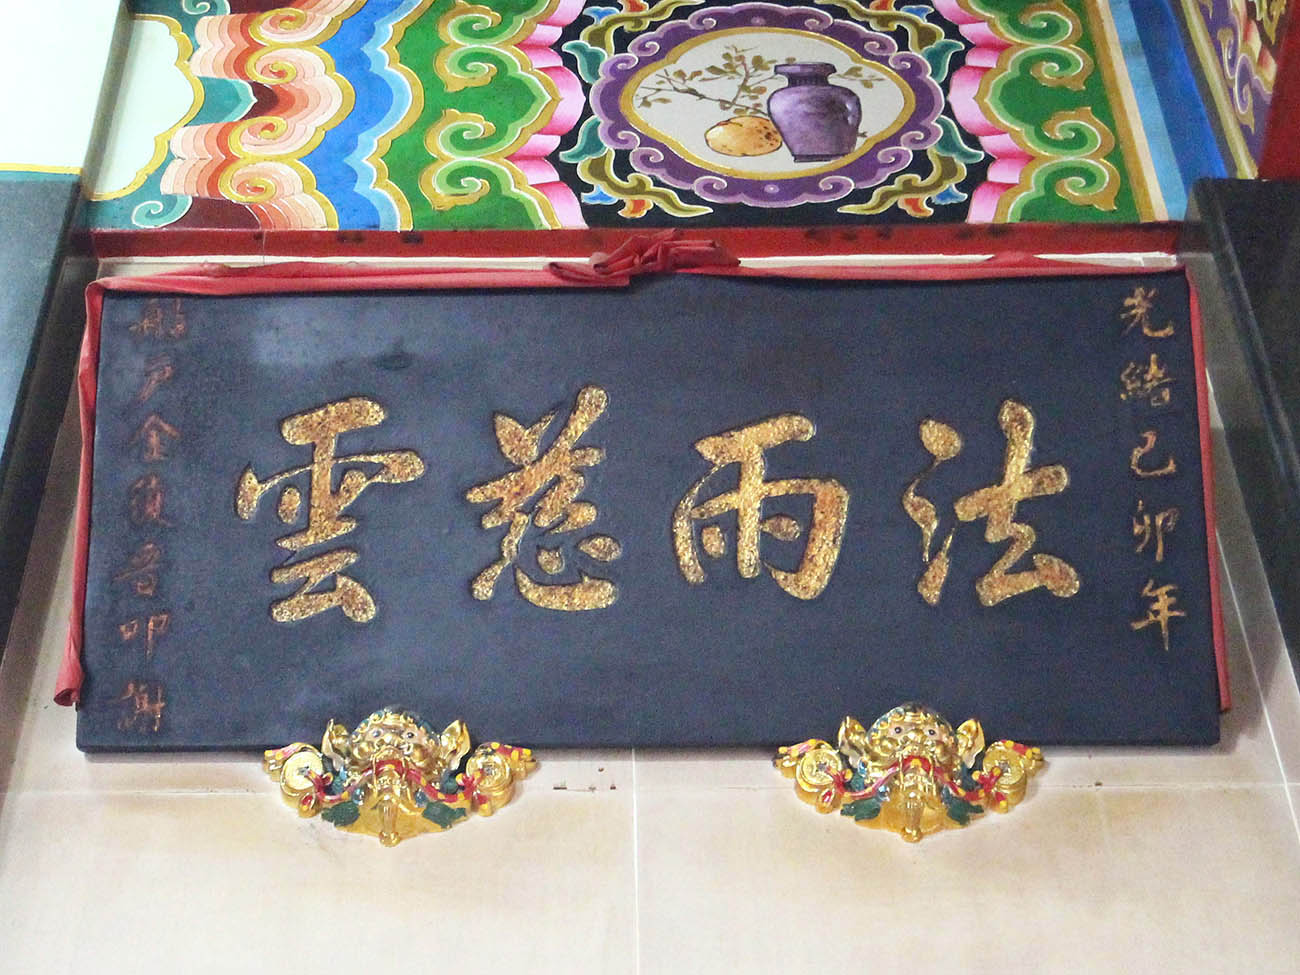 光緒己卯年
法雨慈雲
船戶金復發叩謝